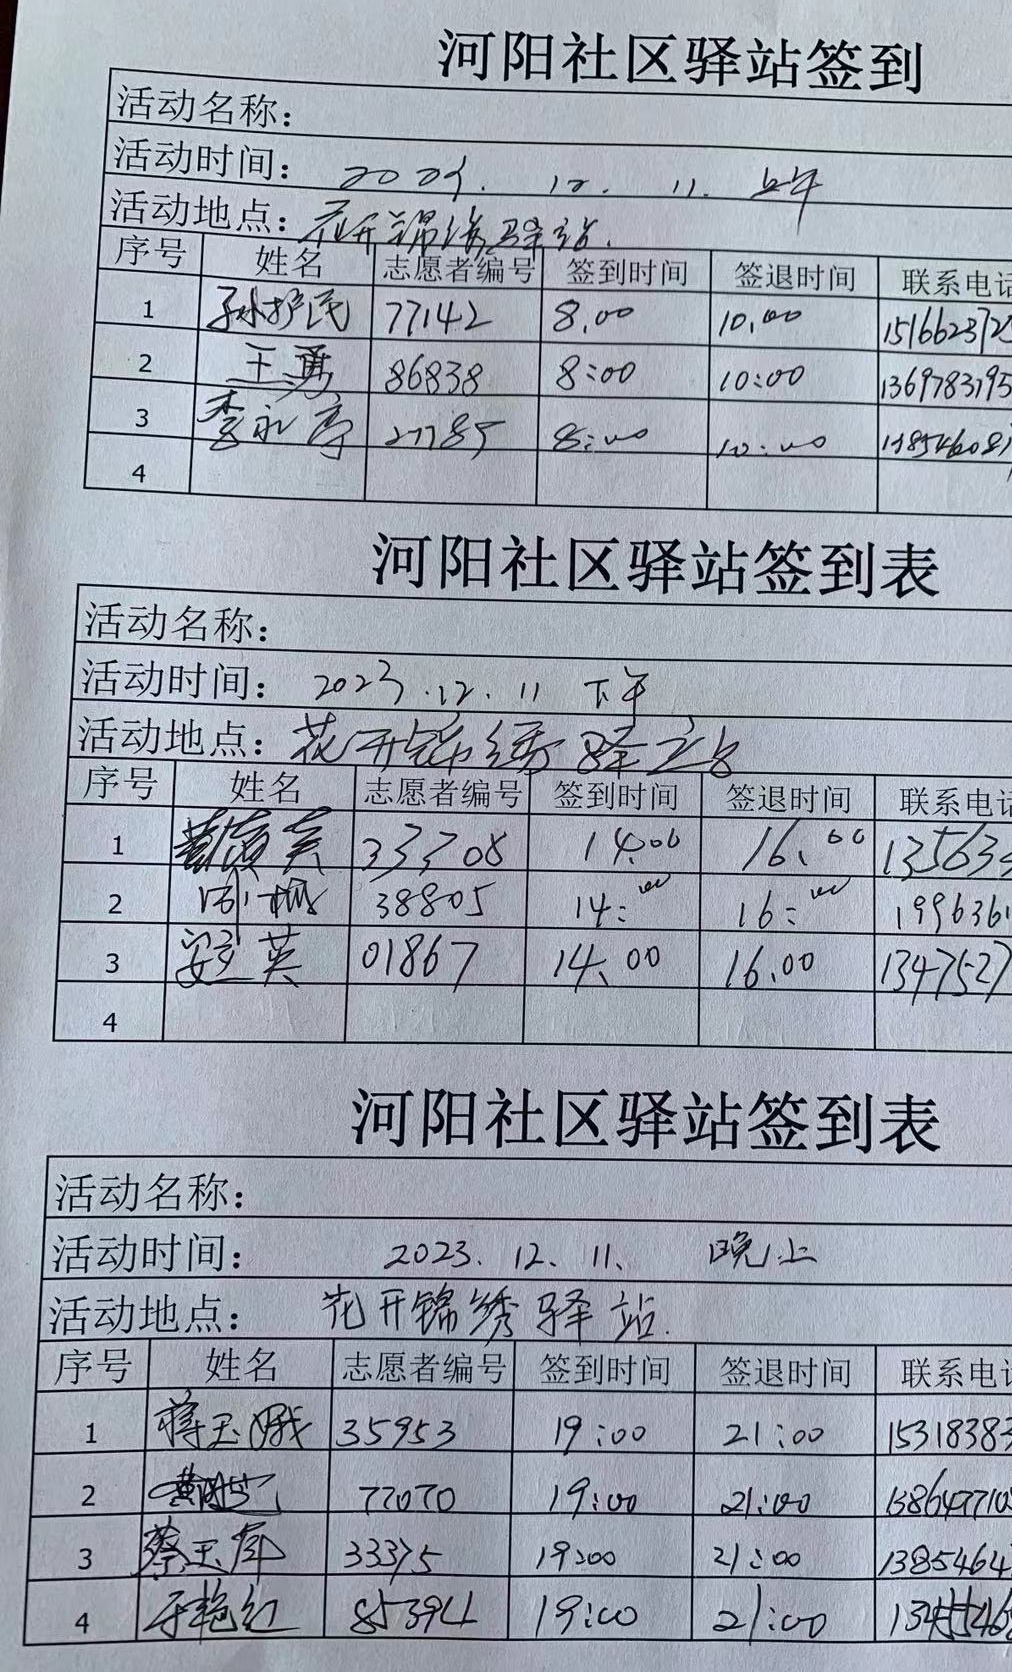 河阳社区驿站签到
活动名称：
活动时间： 12. 11. 上午
活动地点：花开锦绣驿站.
序号 姓名 志愿者编号 签到时间 签退时间 联系电话
1 孙护民 77142 8.00 10.00
2 王勇 86838 8:00 10:00 1369783795
3 李永亭 27785 8:00 10:00
4
河阳社区驿站签到表
活动名称：
活动时间： 2023.12.11 下午
活动地点：花开锦绣驿站
序号 姓名 志愿者编号 签到时间 签退时间 联系电话
1 14.00 16.00 13563
2 38805 14:00 16:00 1996361
3 安立英 01867 14.00 16.00 1347527
4
河阳社区驿站签到表
活动名称：
活动时间： 2023. 12. 11. 晚上
活动地点： 花开锦绣驿站.
序号 姓名 志愿者编号 签到时间 签退时间 联系电话
1 蒋玉娥 35953 19:00 21:00 15318383
2 77070 19:00 21:00
3 蔡玉军 33375 19:00 21:00 1385464
4 于艳红 85394 19:00 21:00